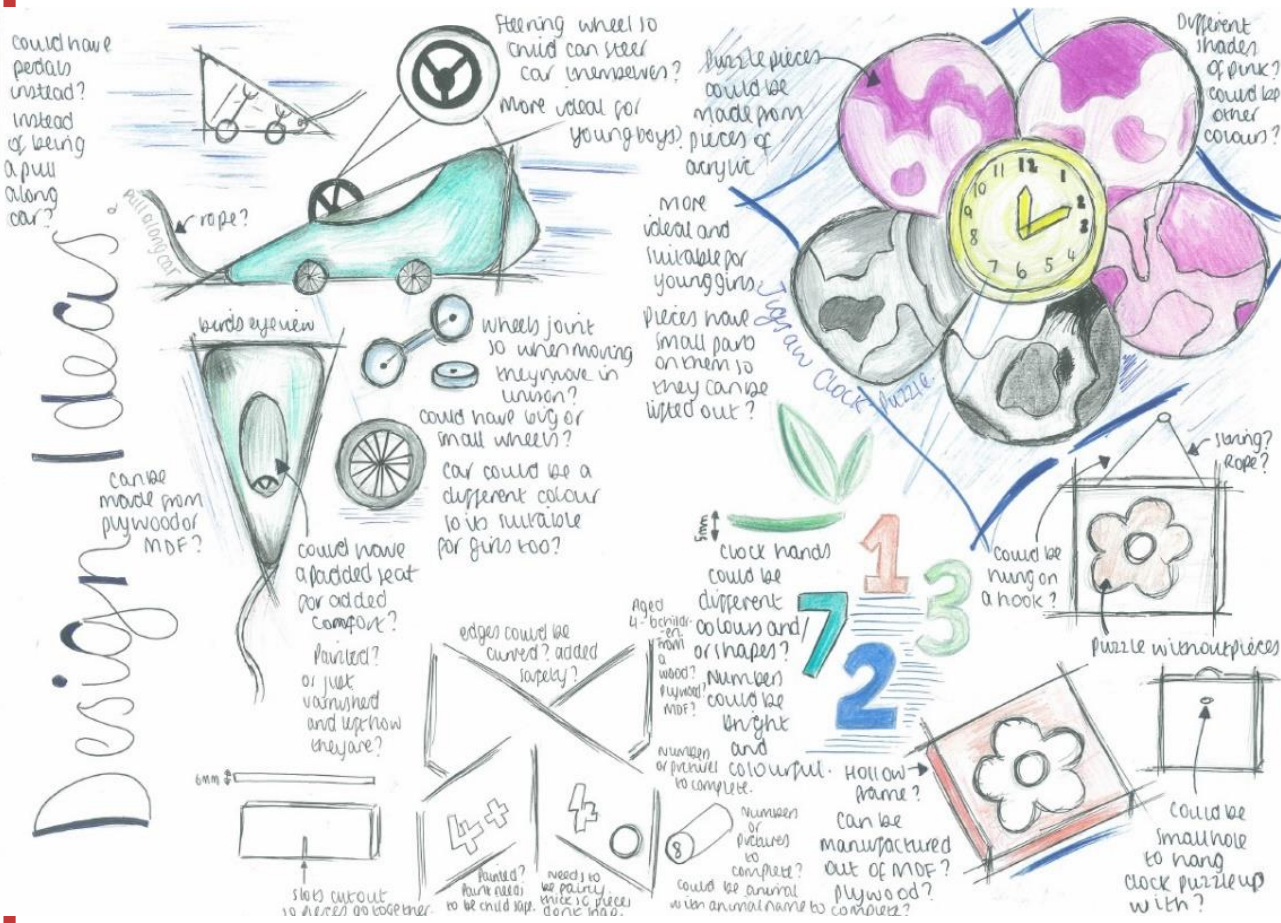 Design Ideas
could have
pedals
instead?
instead
of being
a pull
along
car?
Pull along car
rope?
Steering wheel so
child can steer
car themselves?
More ideal for
young boys?
birds eye view
wheels joint
so when moving
they move in
unison?
could have big or
small wheels?
car could be a
different colour
so its suitable
for girls too?
can be
made from
plywood or
MDF?
could have
a padded seat
for added
comfort?
Painted?
or just
varnished
and left how
they are?
6mm
slots cut out
so pieces go together.
edges could be
curved? added
safety?
Aged
4-6 children
from
a
wood?
plywood?
MDF?
Numbers
or pictures
to complete.
4+
Painted?
Paint needs
to be child safe.
needs to
be fairly
thick so pieces
8
Numbers
or
pictures
to
complete?
could be animal
with animal name to complete?
Puzzle pieces
could be
made from
pieces of
acrylic
more
ideal and
suitable for
young girls
pieces have
small parts
on them so
they can be
lifted out?
Different
shades
of pink?
could be
other
colours?
11 12 1
10 2
9 2
8 4
7 6 5
Jigsaw Clock Puzzle.
5mm
clock hands
could be
different
colours and
or shapes?
Numbers
could be
bright
and
colourful.
1
7 3
2
string?
Rope?
Could be
hung on
a hook?
Puzzle without pieces
Hollow
frame?
Can be
manufactured
out of MDF?
plywood?
Could be
small hole
to hang
clock puzzle up
with?